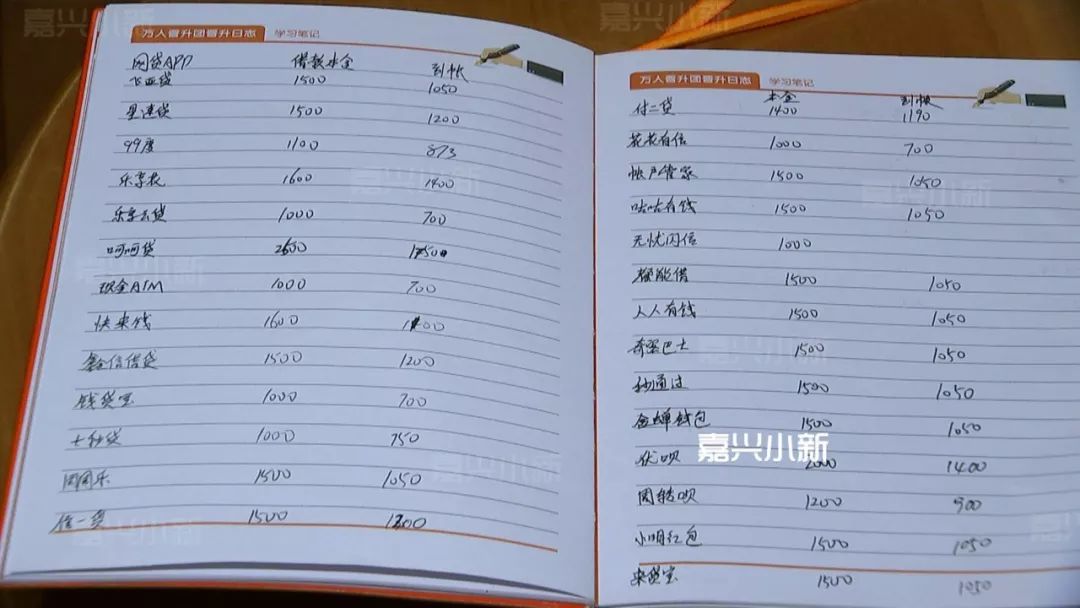 万人晋升团晋升日志 学习笔记
网贷APP 借款本金 到帐
飞亚贷 1500 1050
星速贷 1500 1200
99度 1100 873
乐享花 1600 1400
乐享云贷 1000 700
呵呵贷 2600
现金AIM 1000 700
快来钱 1600
鑫信借贷 1500 1200
钱贷宝 1000 700
七秒贷 1000 750
周周乐 1500 1050
信一贷 1500
万人晋升团晋升日志 学习笔记
本金 到帐
付二贷 1400 1190
花花有信 1000 700
帐户管家 1500 1050
咕咕有钱 1500 1050
无忧闪信 1000
能借 1500 1050
人人有钱 1500 1050
奇强巴士 1500 1050
秒通过 1500 1050
金蝉钱包 1500 1050
优呗 2000 1400
周转呗 1200 900
小明红包 1500 1050
来贷宝 1500 1050
嘉兴小新